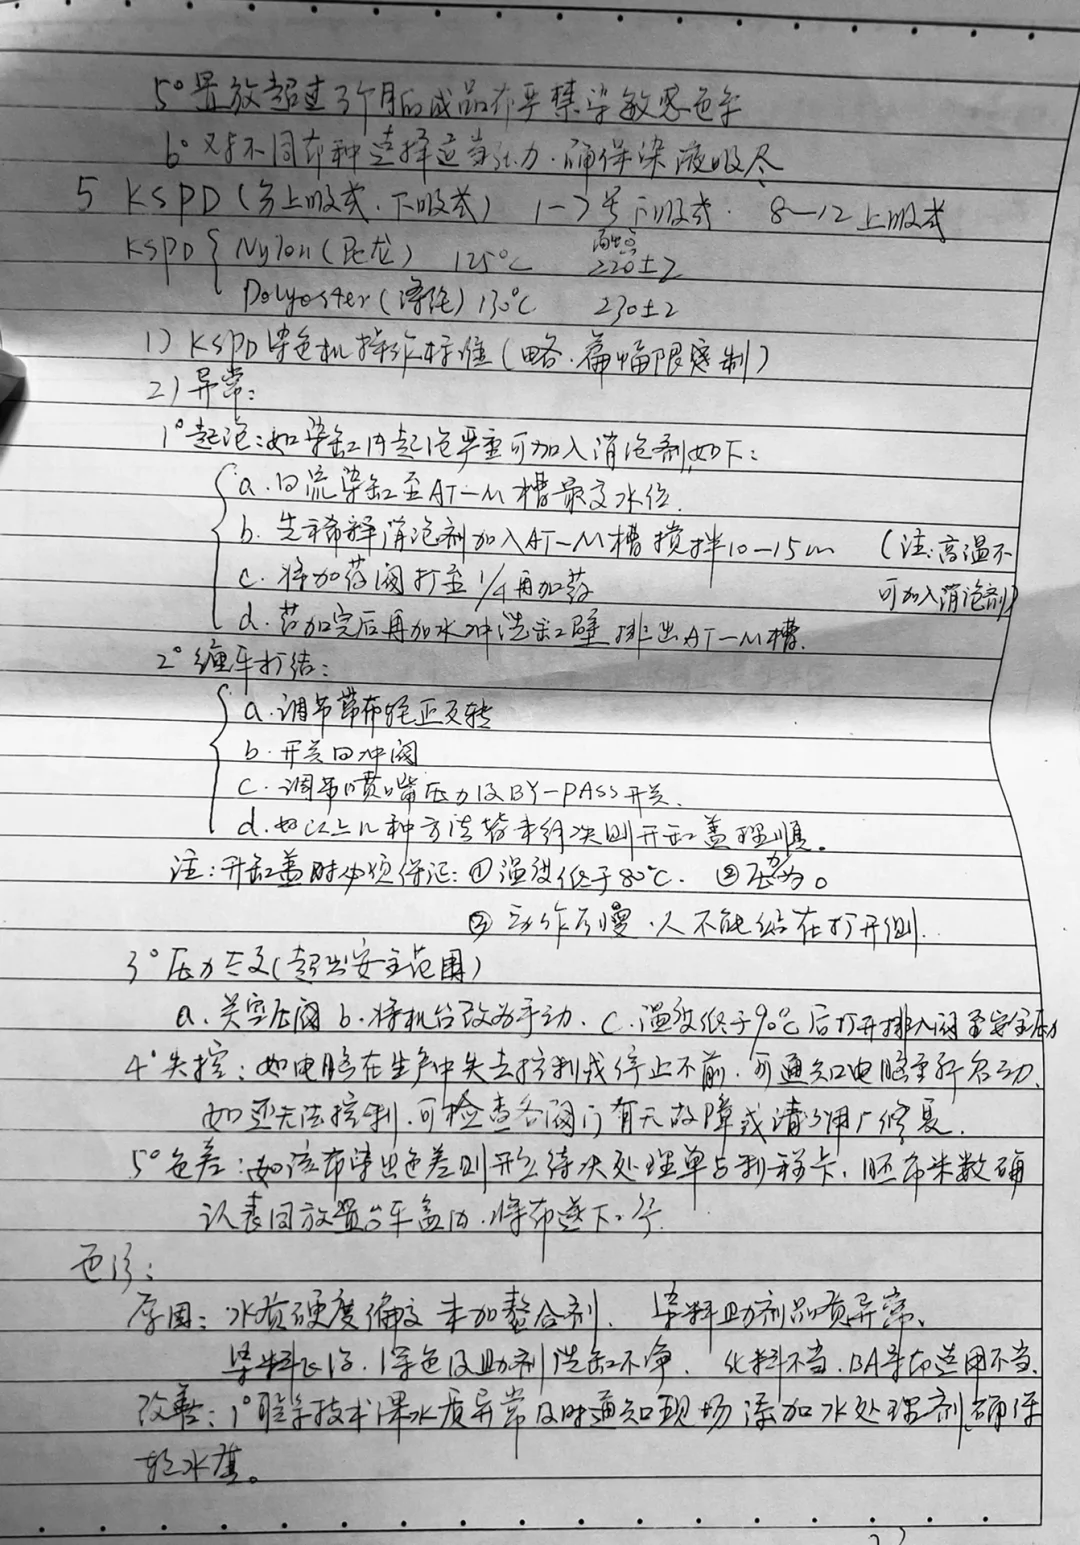 5° 置放超过3个月的成品布严禁染敏感色系
6° 对不同布种选择适当张力.确保染液吸尽
5 KSPD(分上吸式.下吸式) 1-7号下吸式. 8-12上吸式
KSPD { Nylon(尼龙) 125℃ 融点 220±2
Polyester(涤纶) 130℃ 230±2
1) KSPD染色机操作标准(略.篇幅限制)
2) 异常:
1° 起泡:如染缸内起泡严重可加入消泡剂,如下:
a. 回流染缸至AT-M槽最高水位.
b. 先稀释消泡剂加入AT-M槽搅拌10-15m (注:高温不
c. 将加药阀打至1/4再加药 可加入消泡剂)
d. 药加完后再加水冲洗缸壁排出AT-M槽.
2° 缠车打结:
a. 调节带布轮正反转
b. 开关回冲阀
c. 调节喷嘴压力及BY-PASS开关.
d. 如以上几种方法皆未解决则开缸盖理顺。
注:开缸盖时必须保证:①温度低于80℃. ②压力为0
③ 动作应慢.人不能站在打开侧.
3° 压力太高(超出安全范围)
a. 关空压阀 b. 将机台改为手动. c. 温度低于90℃后打开排入阀至安全压力
4° 失控:如电脑在生产中失去控制或停止不前.可通知电脑重新启动.
如还无法控制.可检查各阀门有无故障或请公用厂修复.
5° 色差:如该布染出色差则开立待决处理单与制程卡.胚布米数确
认表同放置台车盒内.将布送下工序.
色污:
原因:水质硬度偏高未加螯合剂. 染料助剂品质异常.
染料飞污.深色及助剂洗缸不净. 化料不当.BA导布选用不当.
改善:1° 验染技术课水质异常及时通知现场添加水处理剂,确保
软水质。